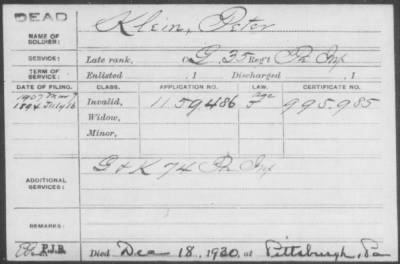 DEAD
NAME OF SOLDIER: Klein, Peter
SERVICE: Late rank, Co G, 35 Reg't Pa Inf
TERM OF SERVICE: Enlisted , 1 Discharged , 1
DATE OF FILING. CLASS. APPLICATION NO. LAW. CERTIFICATE NO.
1907 Mar 7 Age
1894 July 16 Invalid, 1159486 995.985
Widow,
Minor,
ADDITIONAL SERVICES: G & K 74 Pa Inf
REMARKS:
P.J.B. Died Dec 18, 1920, at Pittsburgh, Pa